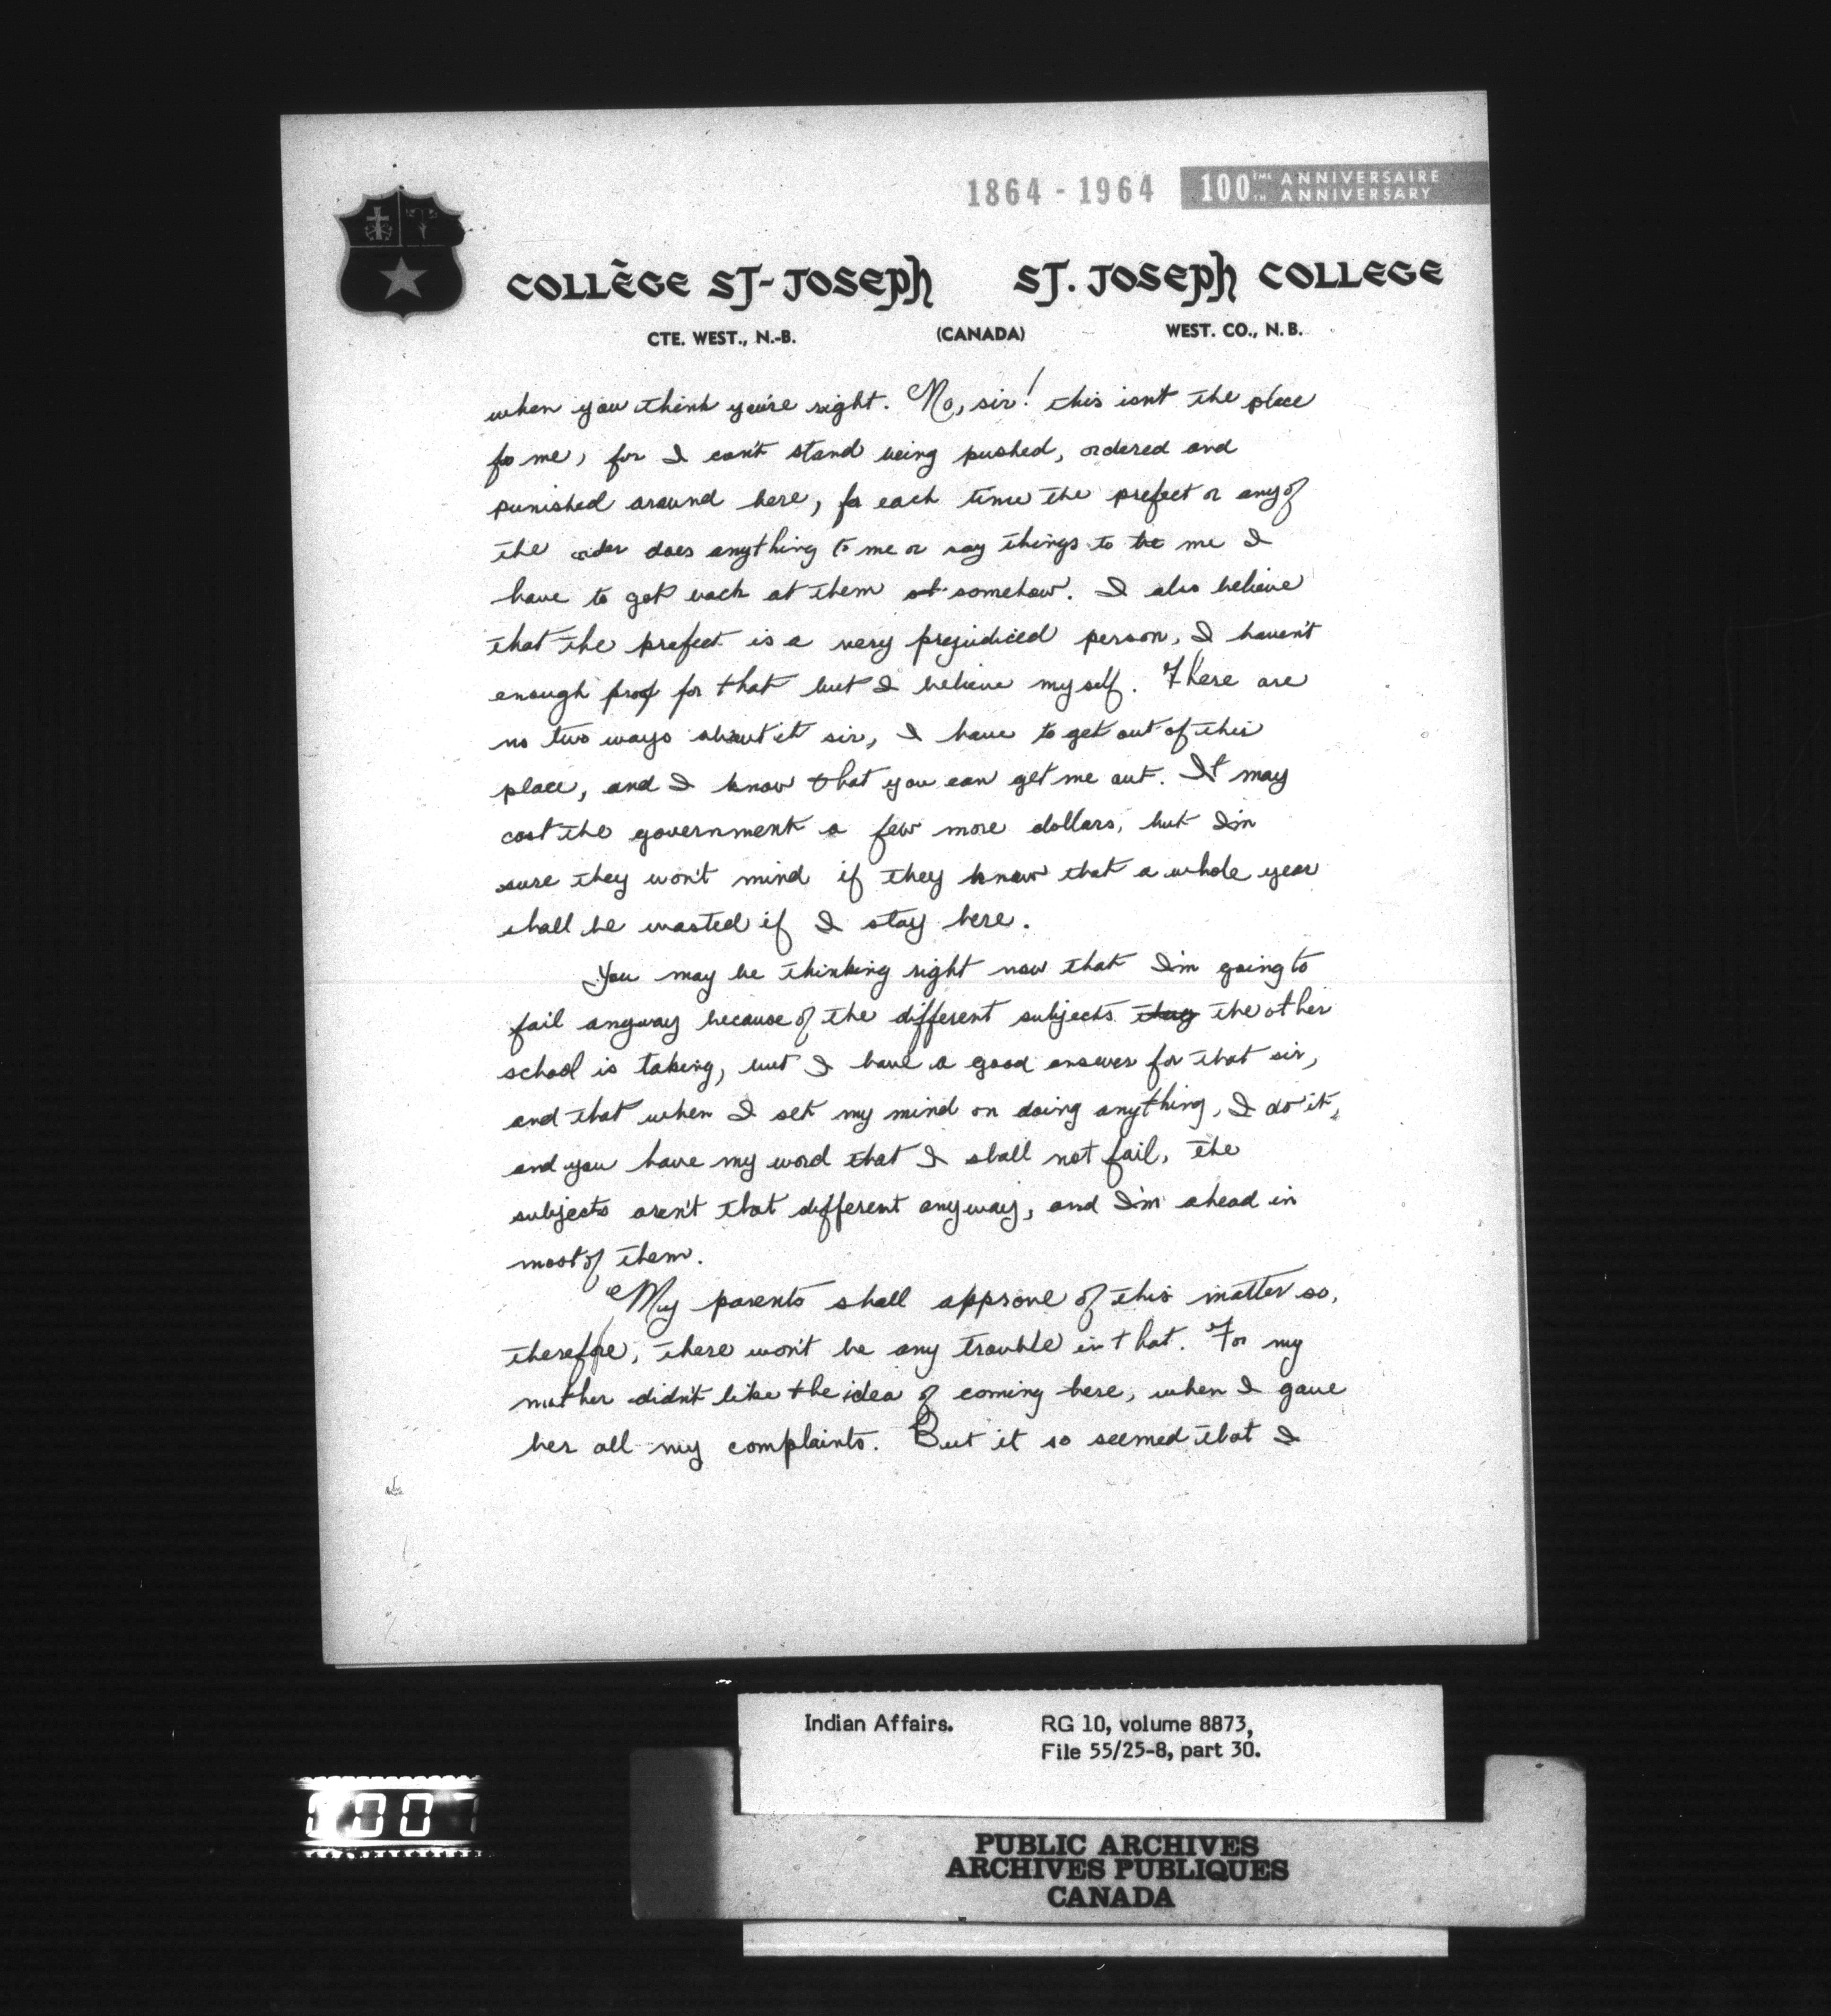 1864 - 1964 100 ème TH ANNIVERSAIRE ANNIVERSARY
COLLÈGE ST-JOSEPH ST. JOSEPH COLLEGE
CTE. WEST., N.-B. (CANADA) WEST. CO., N.B.
when you think you're right. No, sir! this isn't the place
fo me, for I can't stand being pushed, ordered and
punished around here, for each time the prefect or any of
the order does anything to me or say things to me I
have to get back at them somehow. I also believe
that the prefect is a very prejudiced person, I haven't
enough proof for that but I believe myself. There are
no two ways about it sir, I have to get out of this
place, and I know that you can get me out. It may
cost the government a few more dollars, but I'm
sure they won't mind if they know that a whole year
shall be wasted if I stay here.
You may be thinking right now that I'm going to
fail anyway because of the different subjects they the other
school is taking, but I have a good answer for that sir,
and that when I set my mind on doing anything, I do it,
and you have my word that I shall not fail, the
subjects aren't that different anyway, and I'm ahead in
most of them.
My parents shall approve of this matter so,
therefore, there won't be any trouble in that. For my
mother didn't like the idea of coming here, when I gave
her all my complaints. But it so seemed that I
Indian Affairs. RG 10, volume 8873,
File 55/25-8, part 30.
PUBLIC ARCHIVES
ARCHIVES PUBLIQUES
CANADA